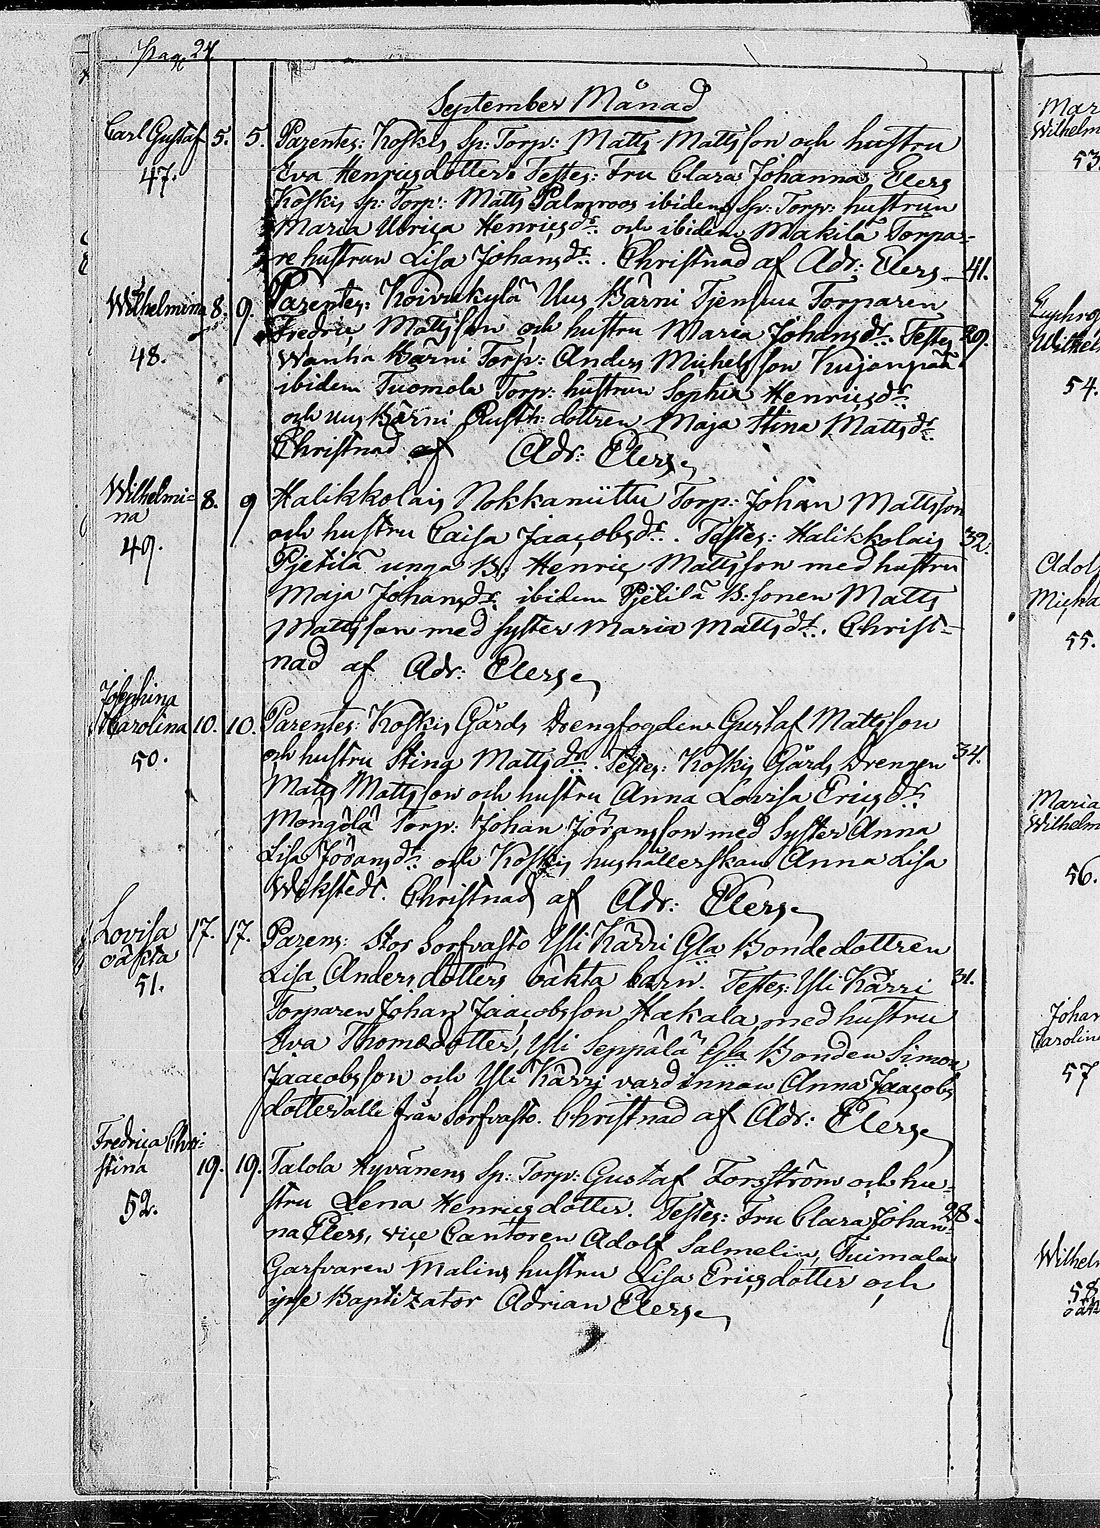 pag 24
September Månad
Carl Gustaf 5. 5. Parentes: Koskis Sp: Torp: Matts Mattsson och hustru
47. Eva Henricsdotter. Testes: Fru Clara Johanna Elers
Koskis Sp: Torp: Matts Palmroos ibidem Sp: Torp: hustrun
Maria Ulrica Henricsdr. och ibidem Makila Torpa-
re hustrun Lisa Johansdr. Christnad af Adr: Elers 41.
Wilhelmina 8. 9. Parentes: Koivukylä Uus Kärni Torparen
Fredric Mattsson och hustru Maria Johansdr. Testes 29.
48. Wanha Kärni Torp: Anders Michelsson
ibidem Tuomola Torp: hustrun Sophia Henricsdr.
och uus Kärni Rusth: dottren Maja Stina Mattsdr.
Christnad af Adr: Elers
Wilhelmi= 8. 9 Halikkolais Nokkaniittu Torp: Johan Mattsson
na och hustru Caisa Jaacobsdr. Testes: Halikkolais 32.
49. Pjetilä unga B: Henric Mattsson med hustru
Maja Johansdr. ibidem Pjetilä B: sonen Matts
Mattsson med syster Maria Mattsdr. Christ=
nad af Adr: Elers
Josephina
Carolina 10. 10. Parentes: Koskis Gårds Drengfogden Gustaf Mattsson
50. och hustru Stina Mattsdr. Testes: Koskis Gårds Drengen 34.
Matts Mattsson och hustru Anna Lovisa Ericsdr.
Mongola Torp: Johan Jöransson med Syster Anna
Lisa Jöransdr. och Koskis hushållerskan Anna Lisa
Wekstedt. Christnad af Adr: Elers
Lovisa 17. 17. Parens: Stor Sorfvasto Yli Kärri Gla Bondedottren
oäkta Lisa Andersdotters oäkta barn. Testes: Yli Kärri 31.
51. Torparen Johan Jaacobsson Hakala med hustru
Eva Thomædotter, Yli Seppälä Gla Bonden Simon
Jaacobsson och Yli Kärri värdinnan Anna Jaacobs
dotter alle från Sorfvasto. Christnad af Adr: Elers
Fredrica Chri-
stina 19. 19. Talola Hyvänens Sp: Torp: Gustaf Forsström och hu-
52. stru Lena Henricsdotter. Testes: Fru Clara Johan- 28.
na Elers, vice Cantoren Adolf Salmelin, Tuimala
Garfvaren Malins hustru Lisa Ericsdotter och
ipse Baptizator Adrian Elers
Wilhelm
53.
54.
Adolf
Micha
55.
Maria
Wilhelm
56.
Johan
Carolin
57
Wilhelm
58